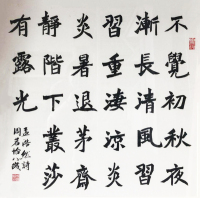 不覺初秋夜
漸長清風習
習重淒涼炎
炎暑退茅齋
靜階下叢莎
有露光
孟浩然詩